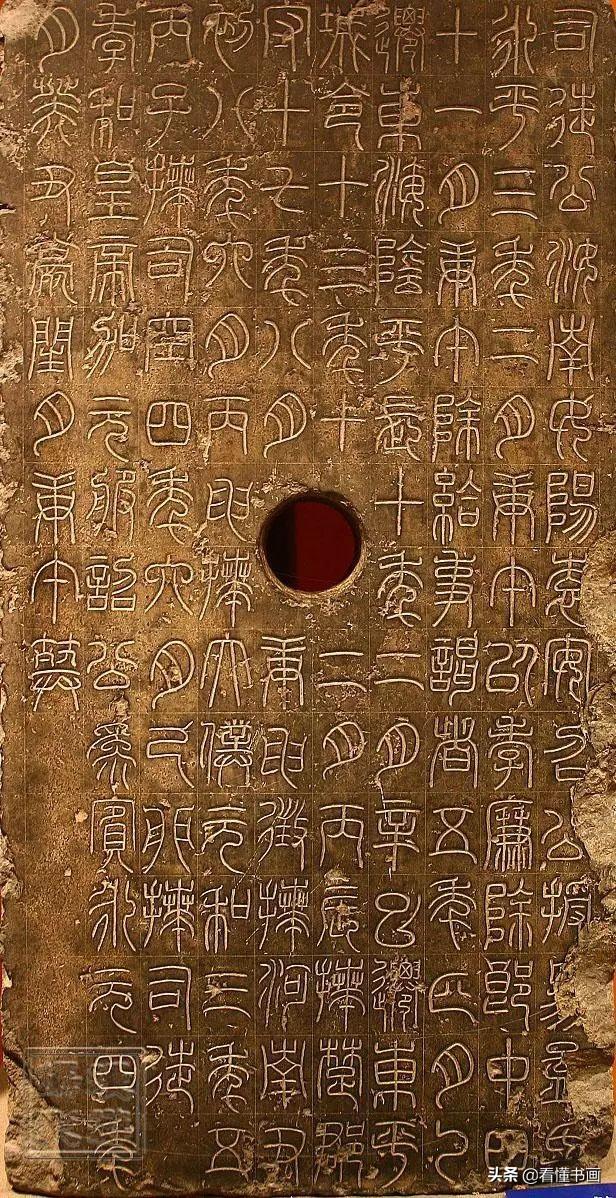 司徒公汝南女陽袁安召公授易孟氏
永平三年二月庚午以孝廉除郎中四
十一月庚午除給事謁者五年四月乙
遷東海陰平長十年二月辛巳遷東平
城令十三年十二月丙辰拜楚郡
守十七年八月庚申徵拜河南尹
初八年六月丙申拜太僕元和三年五
丙子拜司空四年六月己卯拜司徒
孝和皇帝加元服詔公為賓永元四年
月癸丑薨閏月庚午葬
头条 @看懂书画